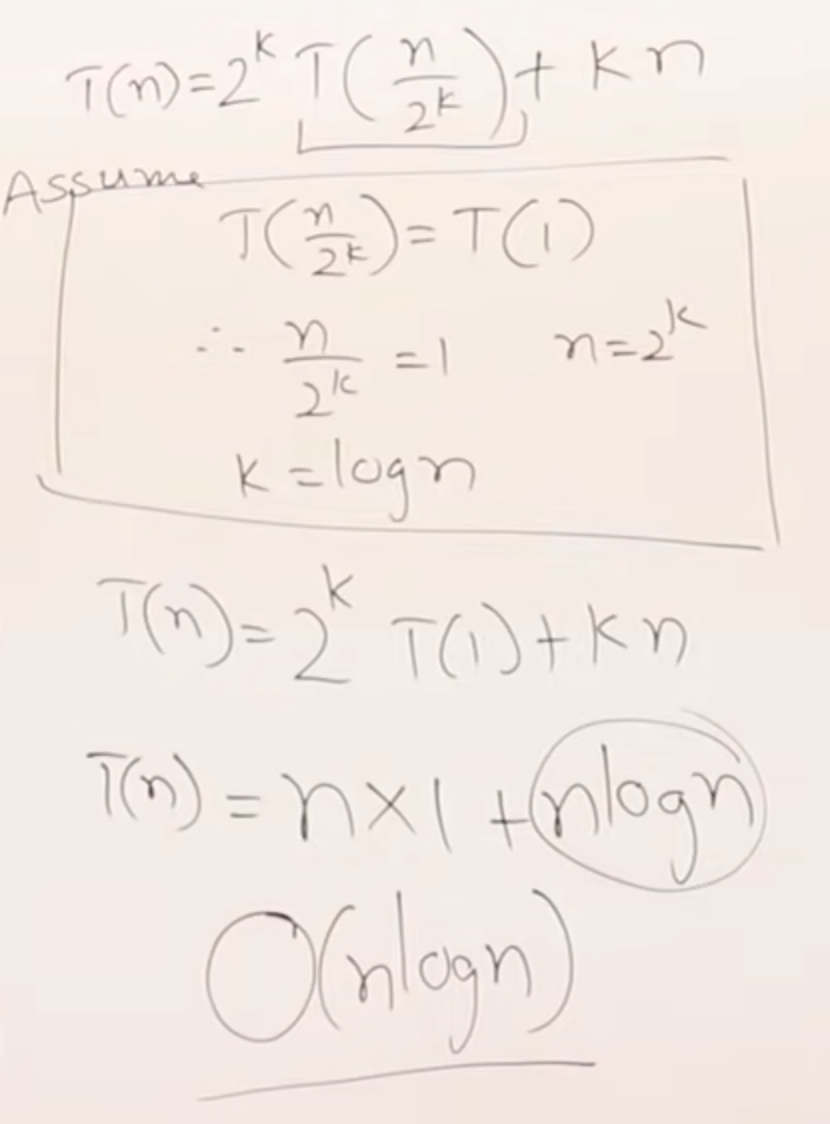 T(n)=2^k T(n/2^k)+ kn
Assume
T(n/2^k)= T(1)
∴ n/2^k =1 n=2^k
k=logn
T(n)=2^k T(1)+kn
T(n) = n×1 +nlogn
O(nlogn)